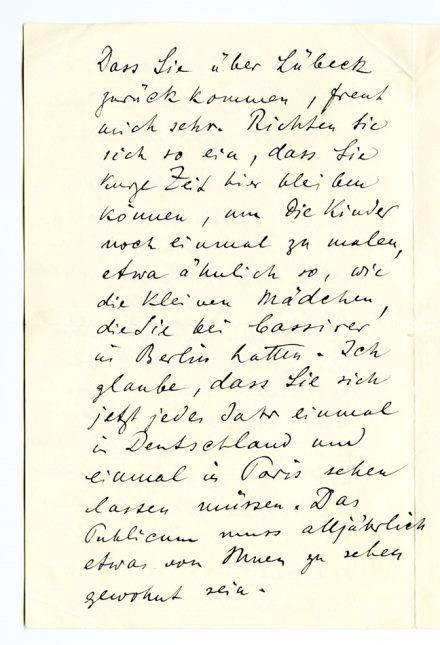 Dass Sie über Lübeck
zurückkommen, freut
mich sehr. Richten Sie
sich so ein, dass Sie
kurze Zeit hier bleiben
können, um die Kinder
noch einmal zu malen,
etwa ähnlich so, wie
die kleinen Mädchen,
die Sie bei Cassirer
in Berlin hatten. Ich
glaube, dass Sie sich
jetzt jedes Jahr einmal
in Deutschland und
einmal in Paris sehen
lassen müssen. Das
Publicum muss alljährlich
etwas von Ihnen zu sehen
gewohnt sein.